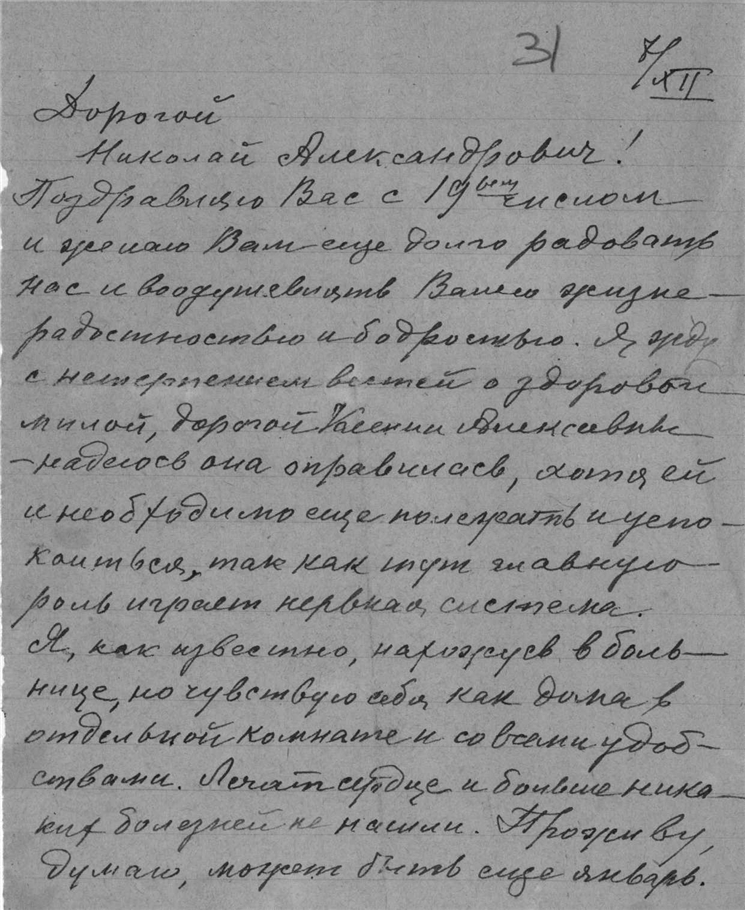 31
7/XII
Дорогой
Николай Александрович!
Поздравляю Вас с 19ым числом
и желаю Вам еще долго радовать
нас и воодушевлять Вашею жизне-
радостностью и бодростью. Я жду
с нетерпением вестей о здоровьи
милой, дорогой Ксении Алексеевны
- надеюсь она оправилась, хотя ей
и необходимо еще полежать и успо-
коиться, так как тут главную
роль играет нервная система.
Я, как известно, нахожусь в боль-
нице, но чувствую себя как дома в
отдельной комнате и со всеми удоб-
ствами. Лечат сердце и больше ника-
ких болезней не нашли. Проживу,
думаю, может быть еще январь.